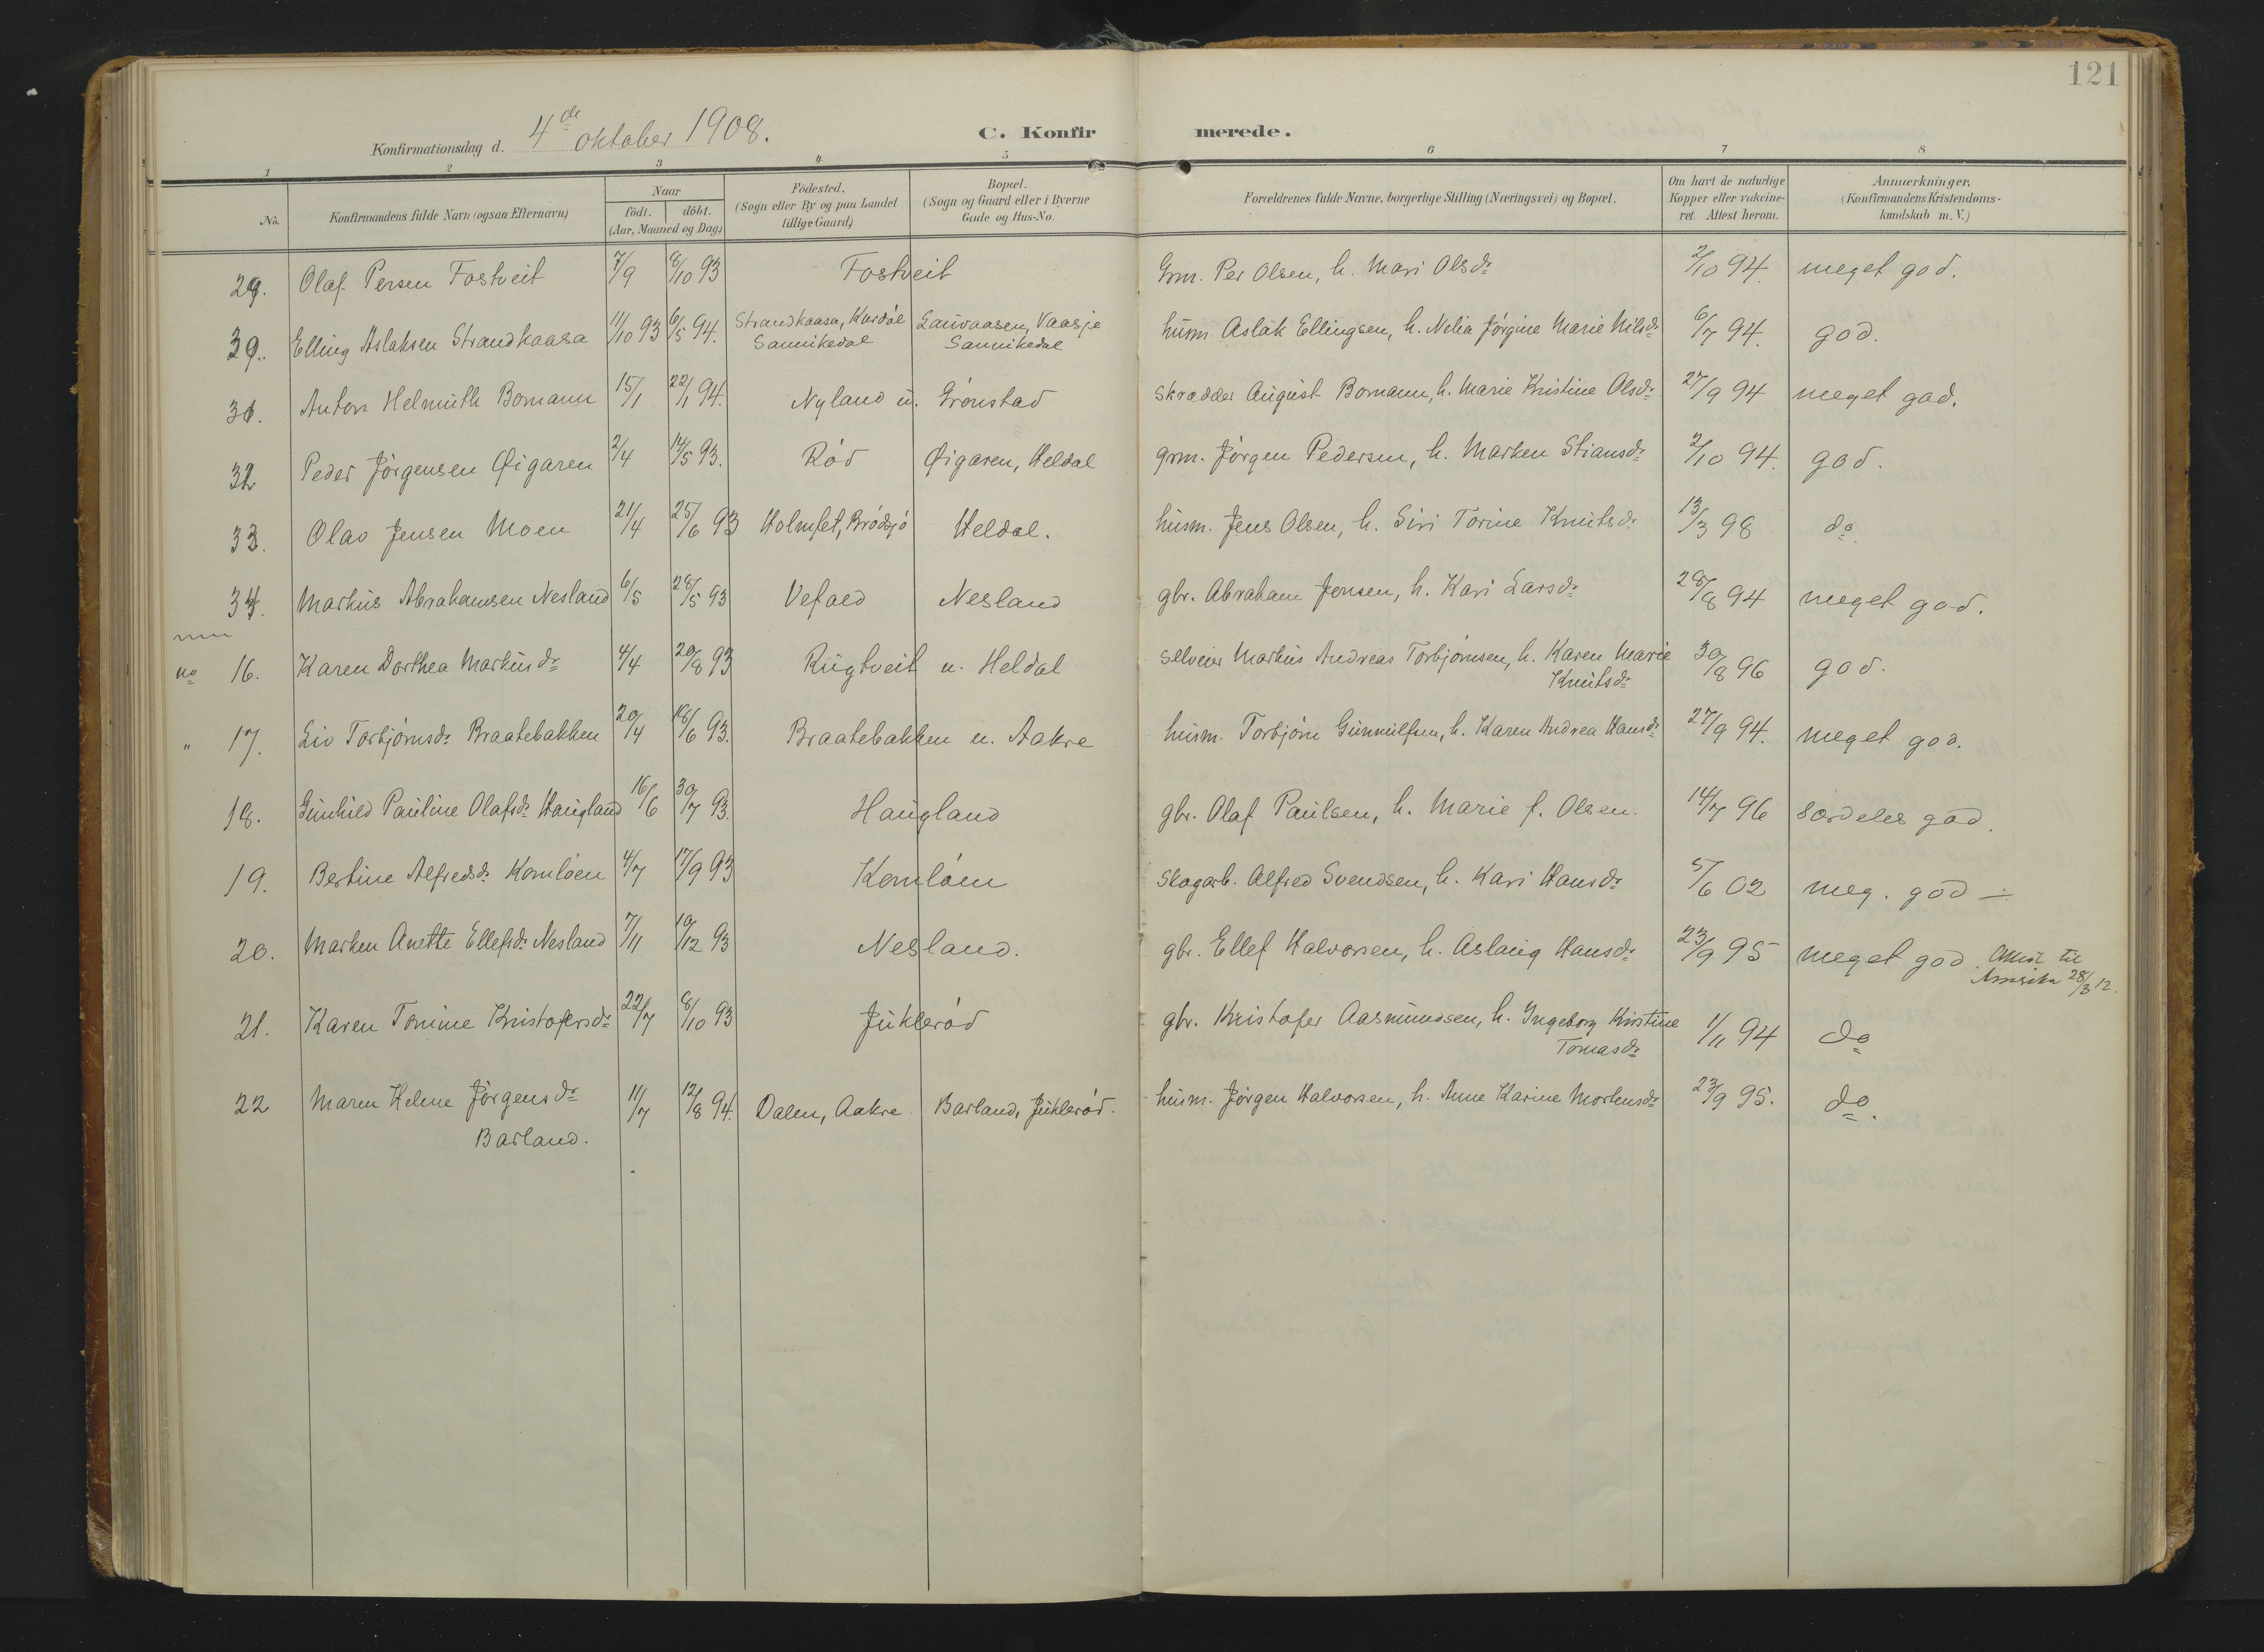 121
Konfirmationsdag d. 4de oktober 1908.
C. Konfirmerede.
1 2 3 4 5 6 7 8
No. Konfirmandens fulde Navn (ogsaa Efternavn) Naar födt. döbt. (Aar, Maaned og Dag) Födested. (Sogn eller By og paa Landet tillige Gaard) Bopæl. (Sogn og Gaard eller i Byerne Gade og Hus-No. Forældrenes fulde Navne, borgerlige Stilling (Næringsvei) og Bopæl. Om havt de naturlige Kopper eller vakcineret. Attest herom. Anmerkninger. (Konfirmandens Kristendomskundskab m. V.)
29. Olaf Persen Fostveit 7/9 8/10 93 Fostveit Grm. Per Olsen, h. Mari Olsdr 2/10 94. meget god.
30. Elling Aslaksen Strandkaasa 11/10 93 6/5 94. Strandkaasa, Kurdöl Lauvaasen, Vaasje husm. Aslak Ellingsen, h. Nelia Jörgine Marie Nilsdr 6/7 94. god.
Sannikedal Sannikedal
31. Anton Helmuth Bomann 15/1 22/1 94. Nyland u. Grönstad Skrædder August Bomann, h. Marie Kristine Olsdr 27/9 94 meget god.
32 Peder Jörgensen Øigaren 2/4 14/5 93. Röd Øigaren, Heldal grm. Jörgen Pedersen, h. Marken Stiansdr 2/10 94. god.
33. Olav Jensen Moen 21/4 25/6 93 Holmfet, Brödsjö Heldal. husm. Jens Olsen, h. Siri Torine Knutsdr 13/3 98 do.
34. Markus Abrahamsen Nesland 6/5 28/5 93 Vefald Nesland gbr. Abraham Jensen, h. Kari Larsdr 28/8 94 meget god.
no 16. Karen Dorthea Markusdr 4/4 20/8 93 Rugtveit u. Heldal Selveier Markus Andreas Torbjörnsen, h. Karen Marie 30/8 96 god.
Knutsdr
" 17. Liv Torbjörnsdr Braatebakken 20/4 18/6 93. Braatebakken u. Aakre husm. Torbjörn Gunnulfsen, h. Karen Andrea Hansdr 27/9 94. meget god.
18. Gunhild Pauline Olafsdr Haugland 16/6 30/7 93. Haugland gbr. Olaf Paulsen, h. Marie f. Olsen. 14/7 96 særdeles god.
19. Bertine Alfredsdr Komlöen 4/7 17/9 93 Komlöen Skogarb. Alfred Svendsen, h. Kari Hansdr 5/6 02 meg. god
20. Marken Anette Ellefsdr Nesland 7/11 10/12 93 Nesland. gbr. Ellef Halvorsen, h. Aslaug Hansdr 23/9 95 meget god Attest til
Amerika 28/3 12.
21. Karen Tomine Kristofersdr 22/7 8/10 93 Jukleröd gbr. Kristofer Aasmundsen, h. Ingeborg Kirstine 1/11 94 do
Tomasdr
22 Maren Helene Jörgensdr 11/7 12/8 94. Dalen, Aakre. Barland, Jukleröd. husm. Jörgen Halvorsen, h. Anne Karine Mortensdr 23/9 95. do.
Barland.